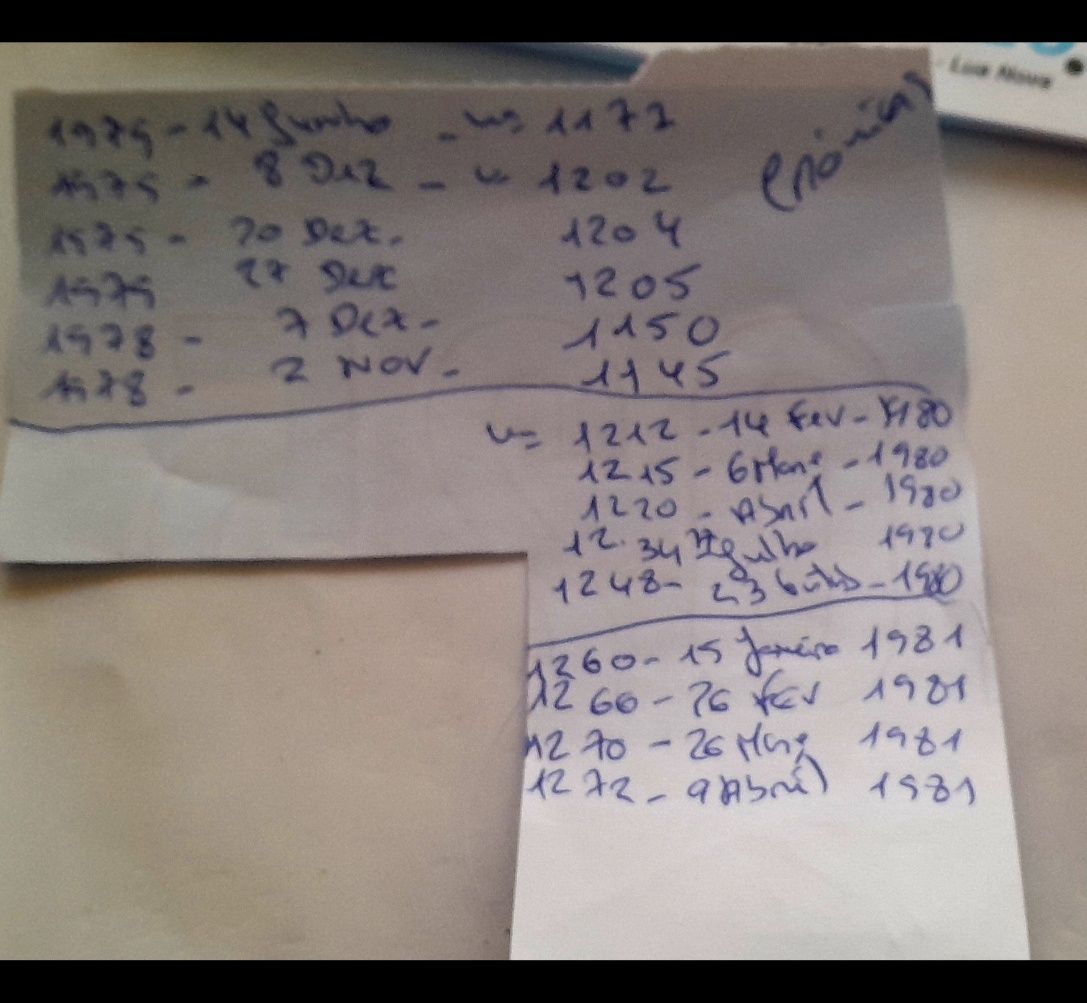 - Lua Nova
1979 - 14 Junho - nº 1177
crónicas
1979 - 8 Dez - nº 1202
1979 - 20 Dez. 1204
1979 27 Dez 1205
1978 - 7 Dez - 1150
1978 - 2 Nov. - 1145
nº 1212 - 14 Fev - 1980
1215 - 6 Março - 1980
1220 - Abril - 1980
12.34 Julho 1980
1248 - 23 - 1980
1260 - 15 Janeiro 1981
1266 - 26 Fev 1981
1270 - 26 Março 1981
1272 - 9 Abril 1981